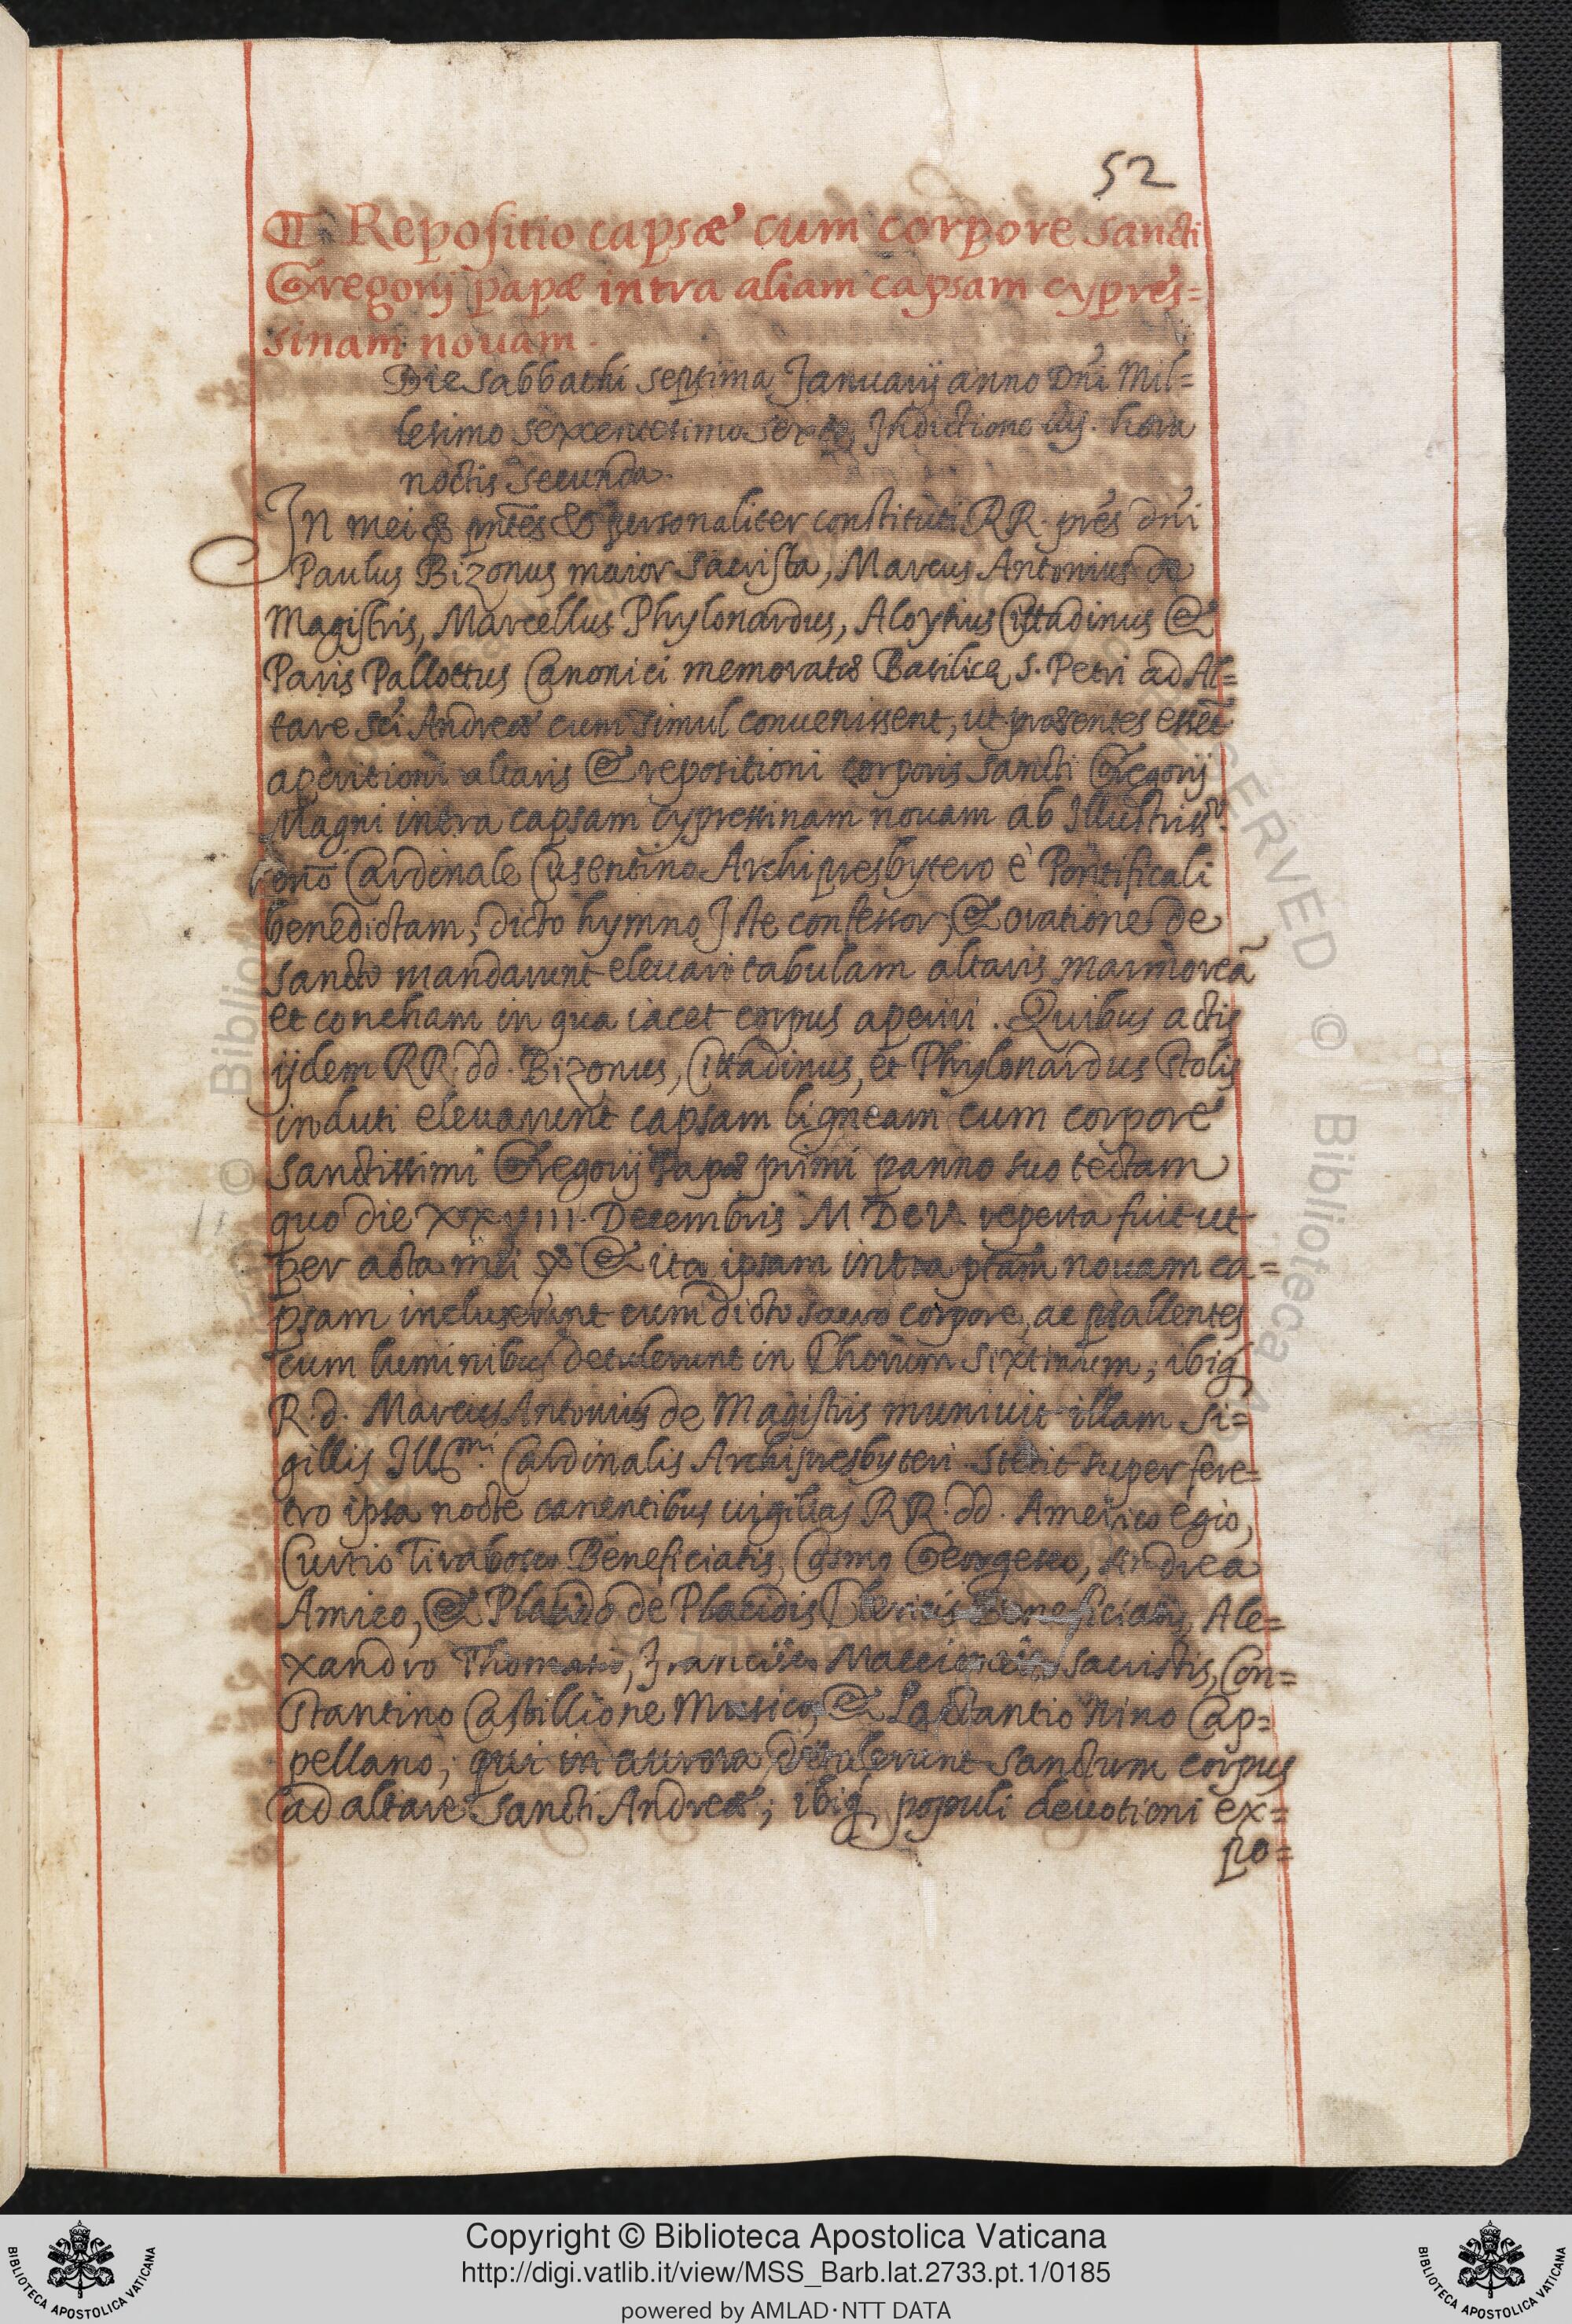 52
¶ Repositio capsæ cum corpore sancti
Gregorij papæ intra aliam capsam cypres=
sinam nouam.
Die sabbathi septima Januarij anno Dñi Mil=
lesimo sexcentesimo sexto, Indictione iiij. hora
noctis secunda.
In mei & pñtes & personaliter constituti RR. pres dñi
Paulus Bizonus maior sacrista, Marcus Antonius de
Magistris, Marcellus Phylonardus, Aloysius Cittadinus &
Paris Pallottus Canonici memoratæ Basilicę S. Petri ad Al=
tare sci Andreæ cum simul conuenissent, ut præsentes essẽt
aperitioni altaris & repositioni corporis sancti Gregorij
Magni intra capsam cypressinam nouam ab Illustriss.
Cardinale Cusentino Archipresbytero è Pontificali
benedictam, dicto hymno Iste confessor, & oratione de
sancto mandarunt eleuari tabulam altaris marmoreã
et concham in qua iacet corpus aperiri. Quibus actis
ijdem RR. dd. Bizonus, Cittadinus, et Phylonardus stolis
induti eleuarunt capsam ligneam cum corpore
sanctissimi Gregorij Papæ primi panno suo tectam
quo die XXVIII. Decembris MDCV. reperta fuit ut
per acta mei & ita ipsam intra ptam nouam ca=
psam incluserunt cum dicto sacro corpore, ac psallentes
cum luminibus detulerunt in Chorum Sixtinum; ibiq
R. d. Marcus Antonius de Magistris muniuit illam si=
gillis Illmi. Cardinalis Archipresbyteri stetit super fere=
tro ipsa nocte canentibus uigilias RR. dd. Americo Egio,
Curtio Tirabosco Beneficiatis, Cosmo Andrea
Amico, & Placido de Placidis Clericis Beneficiatis, Ale=
xandro Thomasio, Francisco sacristis, Con=
stantino Castillione Musico, & Lactantio Nino Cap=
pellano; qui in aurora detulerunt sanctum corpus
ad altare sancti Andreæ; ibiq populi deuotioni ex=
po=
© Biblioteca
RESERVED © Biblioteca
Copyright © Biblioteca Apostolica Vaticana
http://digi.vatlib.it/view/MSS_Barb.lat.2733.pt.1/0185
powered by AMLAD·NTT DATA
BIBLIOTECA APOSTOLICA VATICANA
BIBLIOTECA APOSTOLICA VATICANA